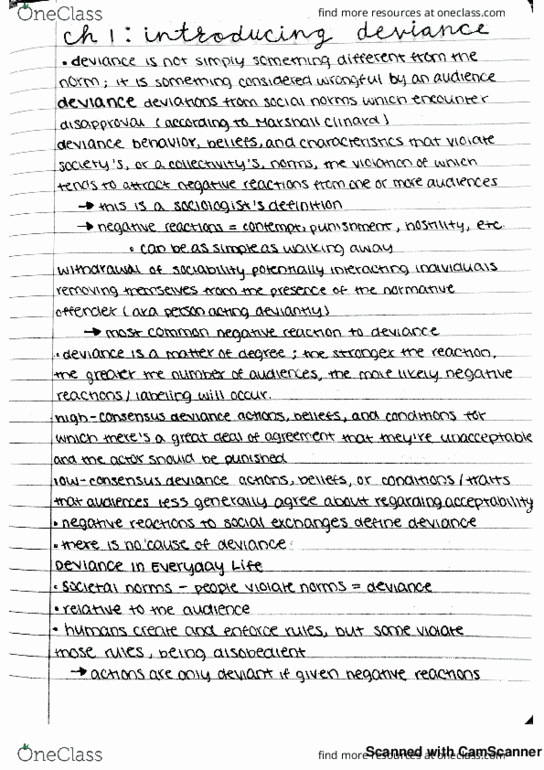 OneClass
find more resources at oneclass.com
ch 1: introducing deviance
• deviance is not simply something different from the
norm; it is something considered wrongful by an audience
deviance deviations from social norms which encounter
disapproval (according to Marshall Clinard)
deviance behavior, beliefs, and characteristics that violate
society's, or a collectivity's, norms, the violation of which
tends to attract negative reactions from one or more audiences
→ this is a sociologist's definition
→ negative reactions = contempt, punishment, hostility, etc.
• can be as simple as walking away
withdrawal of sociability potentially interacting individuals
removing themselves from the presence of the normative
offender (aka person acting deviantly)
→ most common negative reaction to deviance
• deviance is a matter of degree; the stronger the reaction,
the greater the number of audiences, the more likely negative
reactions/labeling will occur.
high-consensus deviance actions, beliefs, and conditions for
which there's a great deal of agreement that they're unacceptable
and the actor should be punished
low-consensus deviance actions, beliefs, or conditions/traits
that audiences less generally agree about regarding acceptability
• negative reactions to social exchanges define deviance
• there is no 'cause of deviance'
Deviance in Everyday Life
• societal norms - people violate norms = deviance
• relative to the audience
• humans create and enforce rules, but some violate
those rules, being disobedient
→ actions are only deviant if given negative reactions
OneClass
find more resources at oneclass.com
Scanned with CamScanner